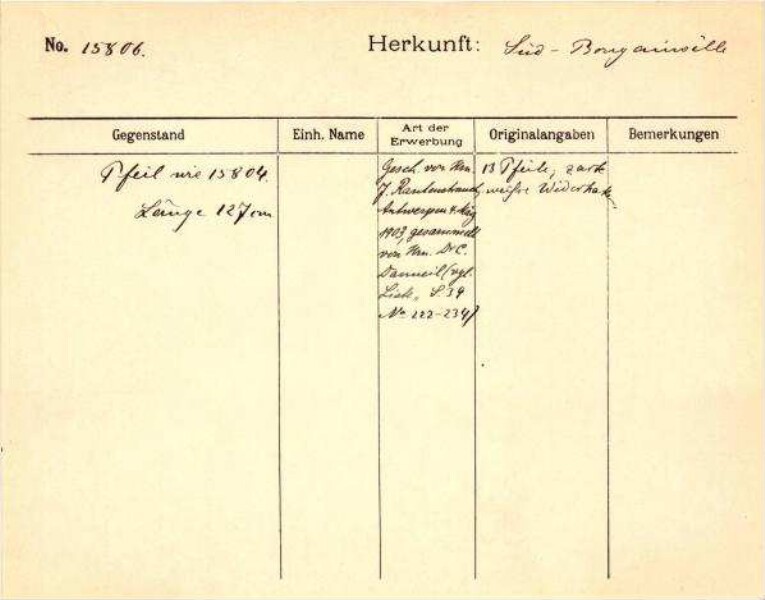 No. 15806.
Herkunft: Süd-Bougainville
Gegenstand
Einh. Name
Art der
Erwerbung
Originalangaben
Bemerkungen
Pfeil wie 15804.
Länge 127 cm
Gesch. von Hrn.
J. Rautenstrauch,
Antwerpen
1903, gesammelt
von Hrn. Dr C.
Danneil (vgl.
Liste, S. 39
No 222-234)
13 Pfeile, zarte
weiße Widerhak